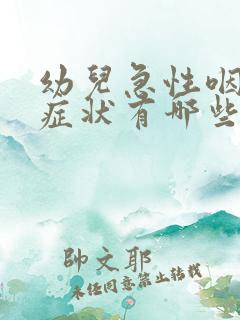 幼兒急性咽
症狀有哪些
帥文耶
未任同意禁止转载